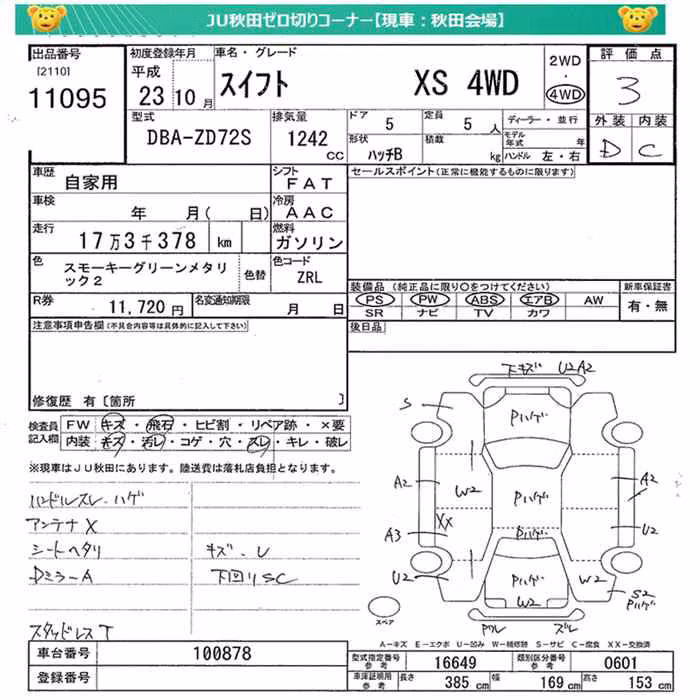 JU秋田ゼロ切りコーナー【現車：秋田会場】
出品番号
[2110]
11095
初度登録年月
平成
23 10 月
車名・グレード
スイフト XS 4WD
2WD
・
4WD
評価点
3
外装 内装
D C
型式
DBA-ZD72S
排気量
1242
CC
ドア
5
定員
5 人
形状
ハッチB
積載
kg
ディーラー・並行
モデル
年式 年
ハンドル 左・右
車歴
自家用
シフト
FAT
車検
年 月( 日)
冷房
AAC
走行
17万3千378 km
燃料
ガソリン
色
スモーキーグリーンメタリ
ック2
色替
色コード
ZRL
R券
11,720 円
名変通知期限
月 日
セールスポイント(正常に機能するものに限ります)
装備品 (純正品に限り○をつけてください)
PS PW ABS エアB AW
SR ナビ TV カワ
新車保証書
有・無
後日品
注意事項申告欄(不具合内容等は具体的に記入して下さい)
修復歴 有〔箇所 〕
検査員
記入欄
FW キズ・飛石・ヒビ割・リペア跡・×要
内装 キズ・汚レ・コゲ・穴・スレ・キレ・破レ
※現車はJU秋田にあります。陸送費は落札店負担となります。
ハンドルスレ・ハゲ
アンテナX
シートヘタリ
キズ・U
DミラーA
下回りSC
スタッドレスT
下キズ U2A2
S
Pハゲ
A2
W2
Pハゲ
A2
XX
A3
Pハゲ
U2
U2
Pハゲ
W2
W2
S2
Pハゲ
スペア
ワレ ズレ
A-キズ E-エクボ U-凹み W-補修跡 S-サビ C-腐食 XX-交換済
車台番号
100878
登録番号
型式指定番号
参考
16649
類別区分番号
参考
0601
車庫証明用
参考
長さ
385 cm
幅
169 cm
高さ
153 cm